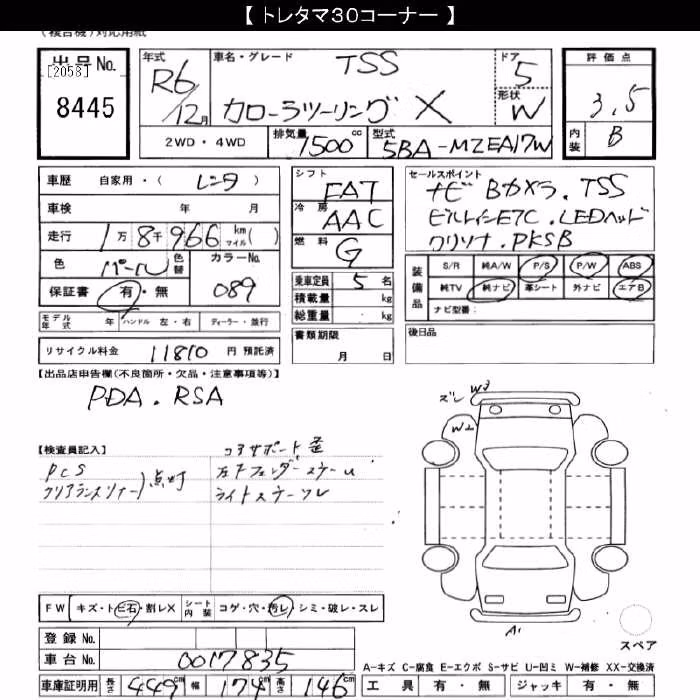 【 トレタマ30コーナー 】
(複合機)対応用紙
出品No. [2058] 8445
年式 R6/12月
車名・グレード TSS
カローラツーリング X
ドア 5
形状 W
評価点 3.5
内装 B
2WD・4WD 排気量 1500cc 型式 5BA-MZEA17W
車歴 自家用・( レンタ )
車検 年 月
走行 1万8千966 km マイル( )
色 パール 色替 カラーNo. 089
保証書 有・無
モデル年式 年 ハンドル 左・右 ディーラー・並行
リサイクル料金 11810 円 預託済
シフト FAT
冷房 AAC
燃料 G
乗車定員 5 名
積載量 kg
総重量 kg
書類期限
月 日
セールスポイント
ナビ Bカメラ. TSS
ビルトインETC. LEDヘッド
クリソナ. PKSB
装備品 S/R 純A/W P/S P/W ABS
純TV 純ナビ 革シート 外ナビ エアB
ナビ型番:
後日品
【出品店申告欄(不良箇所・欠品・注意事項等)】
PDA. RSA
【検査員記入】
PCS
クリアランスソナー) 点灯
コアサポート歪
左Fフェンダー
ライト
ズレ W3
W2
A1
FW キズ・トビ石・割レX シート内装 コゲ・穴・汚レ・シミ・破レ・スレ
登録No.
車台No. 0017835
車庫証明用 長さ 449cm 幅 174cm 高さ 146cm
スペア
A-キズ C-腐食 E-エクボ S-サビ U-凹ミ W-補修 XX-交換済
工具 有・無 ジャッキ 有・無